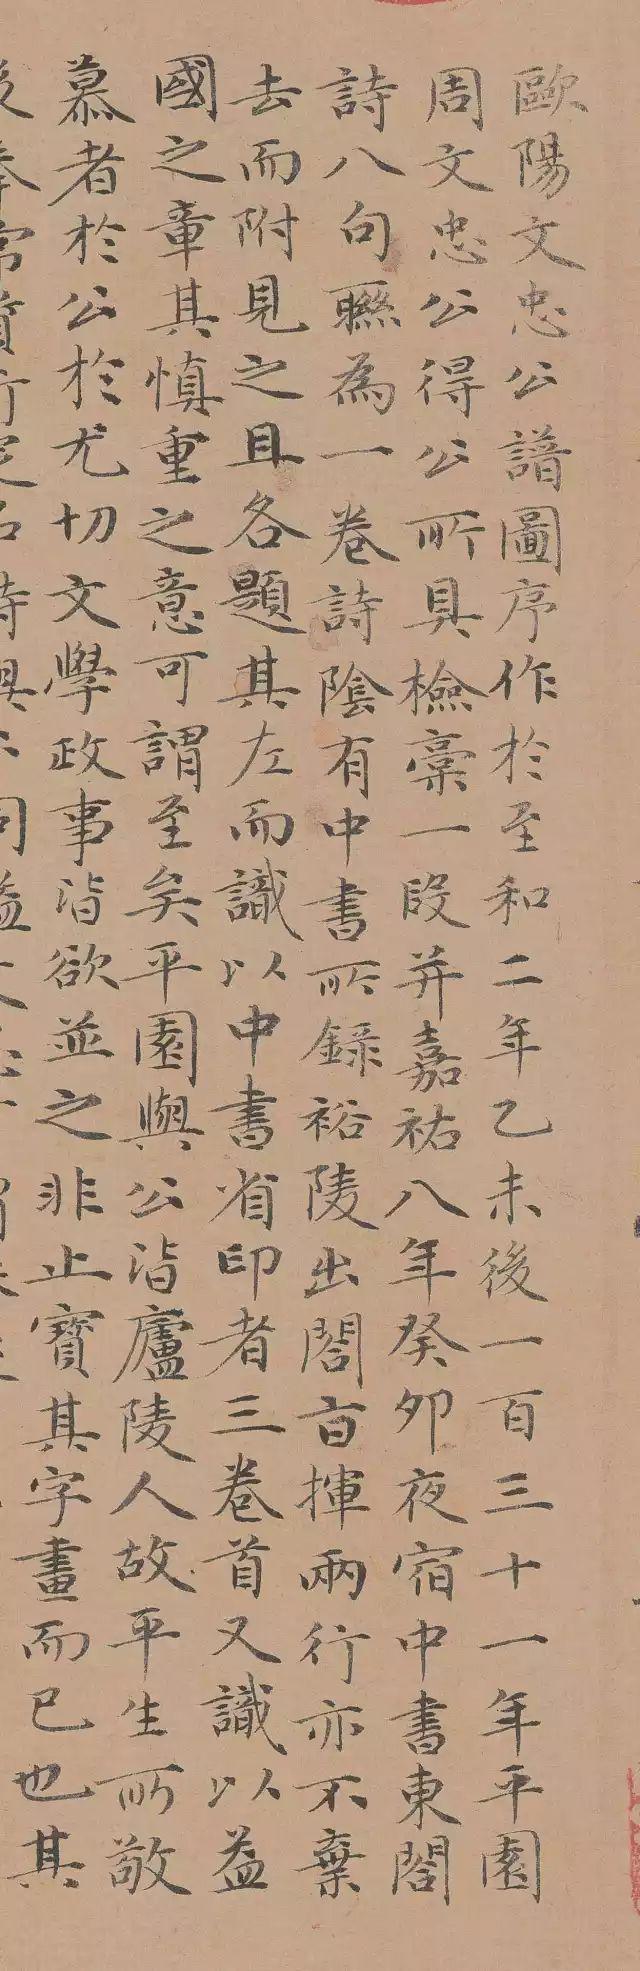 歐陽文忠公譜圖序作於至和二年乙未後一百三十一年平園
周文忠公得公所具檢稾一段并嘉祐八年癸卯夜宿中書東閤
詩八句聯為一卷詩陰有中書所錄裕陵出閤旨揮兩行亦不棄
去而附見之且各題其左而識以中書省印者三卷首又識以益
國之章其慎重之意可謂至矣平園與公皆廬陵人故平生所敬
慕者於公於尤切文學政事皆欲並之非止寶其字畫而已也其